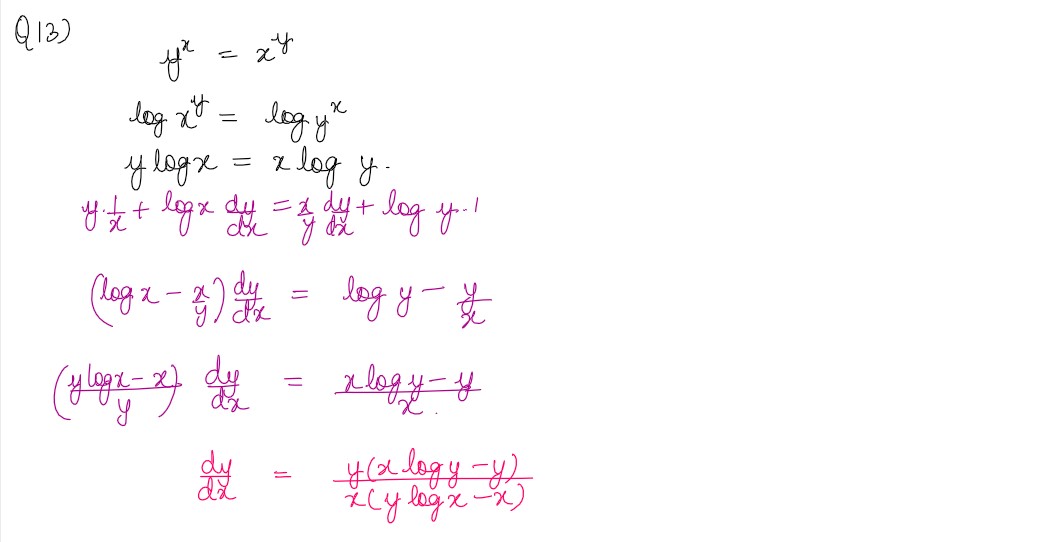 Q13)
y^x = x^y
log x^y = log y^x
y log x = x log y.
y·1/x + log x dy/dx = x/y dy/dx + log y·1
(log x − x/y) dy/dx = log y − y/x
((y log x − x)/y) dy/dx = (x log y − y)/x.
dy/dx = y(x log y − y)/x(y log x − x)